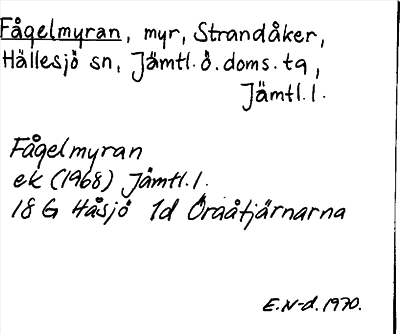 Fågelmyran, myr, Strandåker,
Hällesjö sn, Jämtl.ö.doms.tg,
Jämtl.l.
Fågelmyran
ek (1968) Jämtl.l.
18 G Håsjö 1d Öraåtjärnarna
E.N-d.1970.